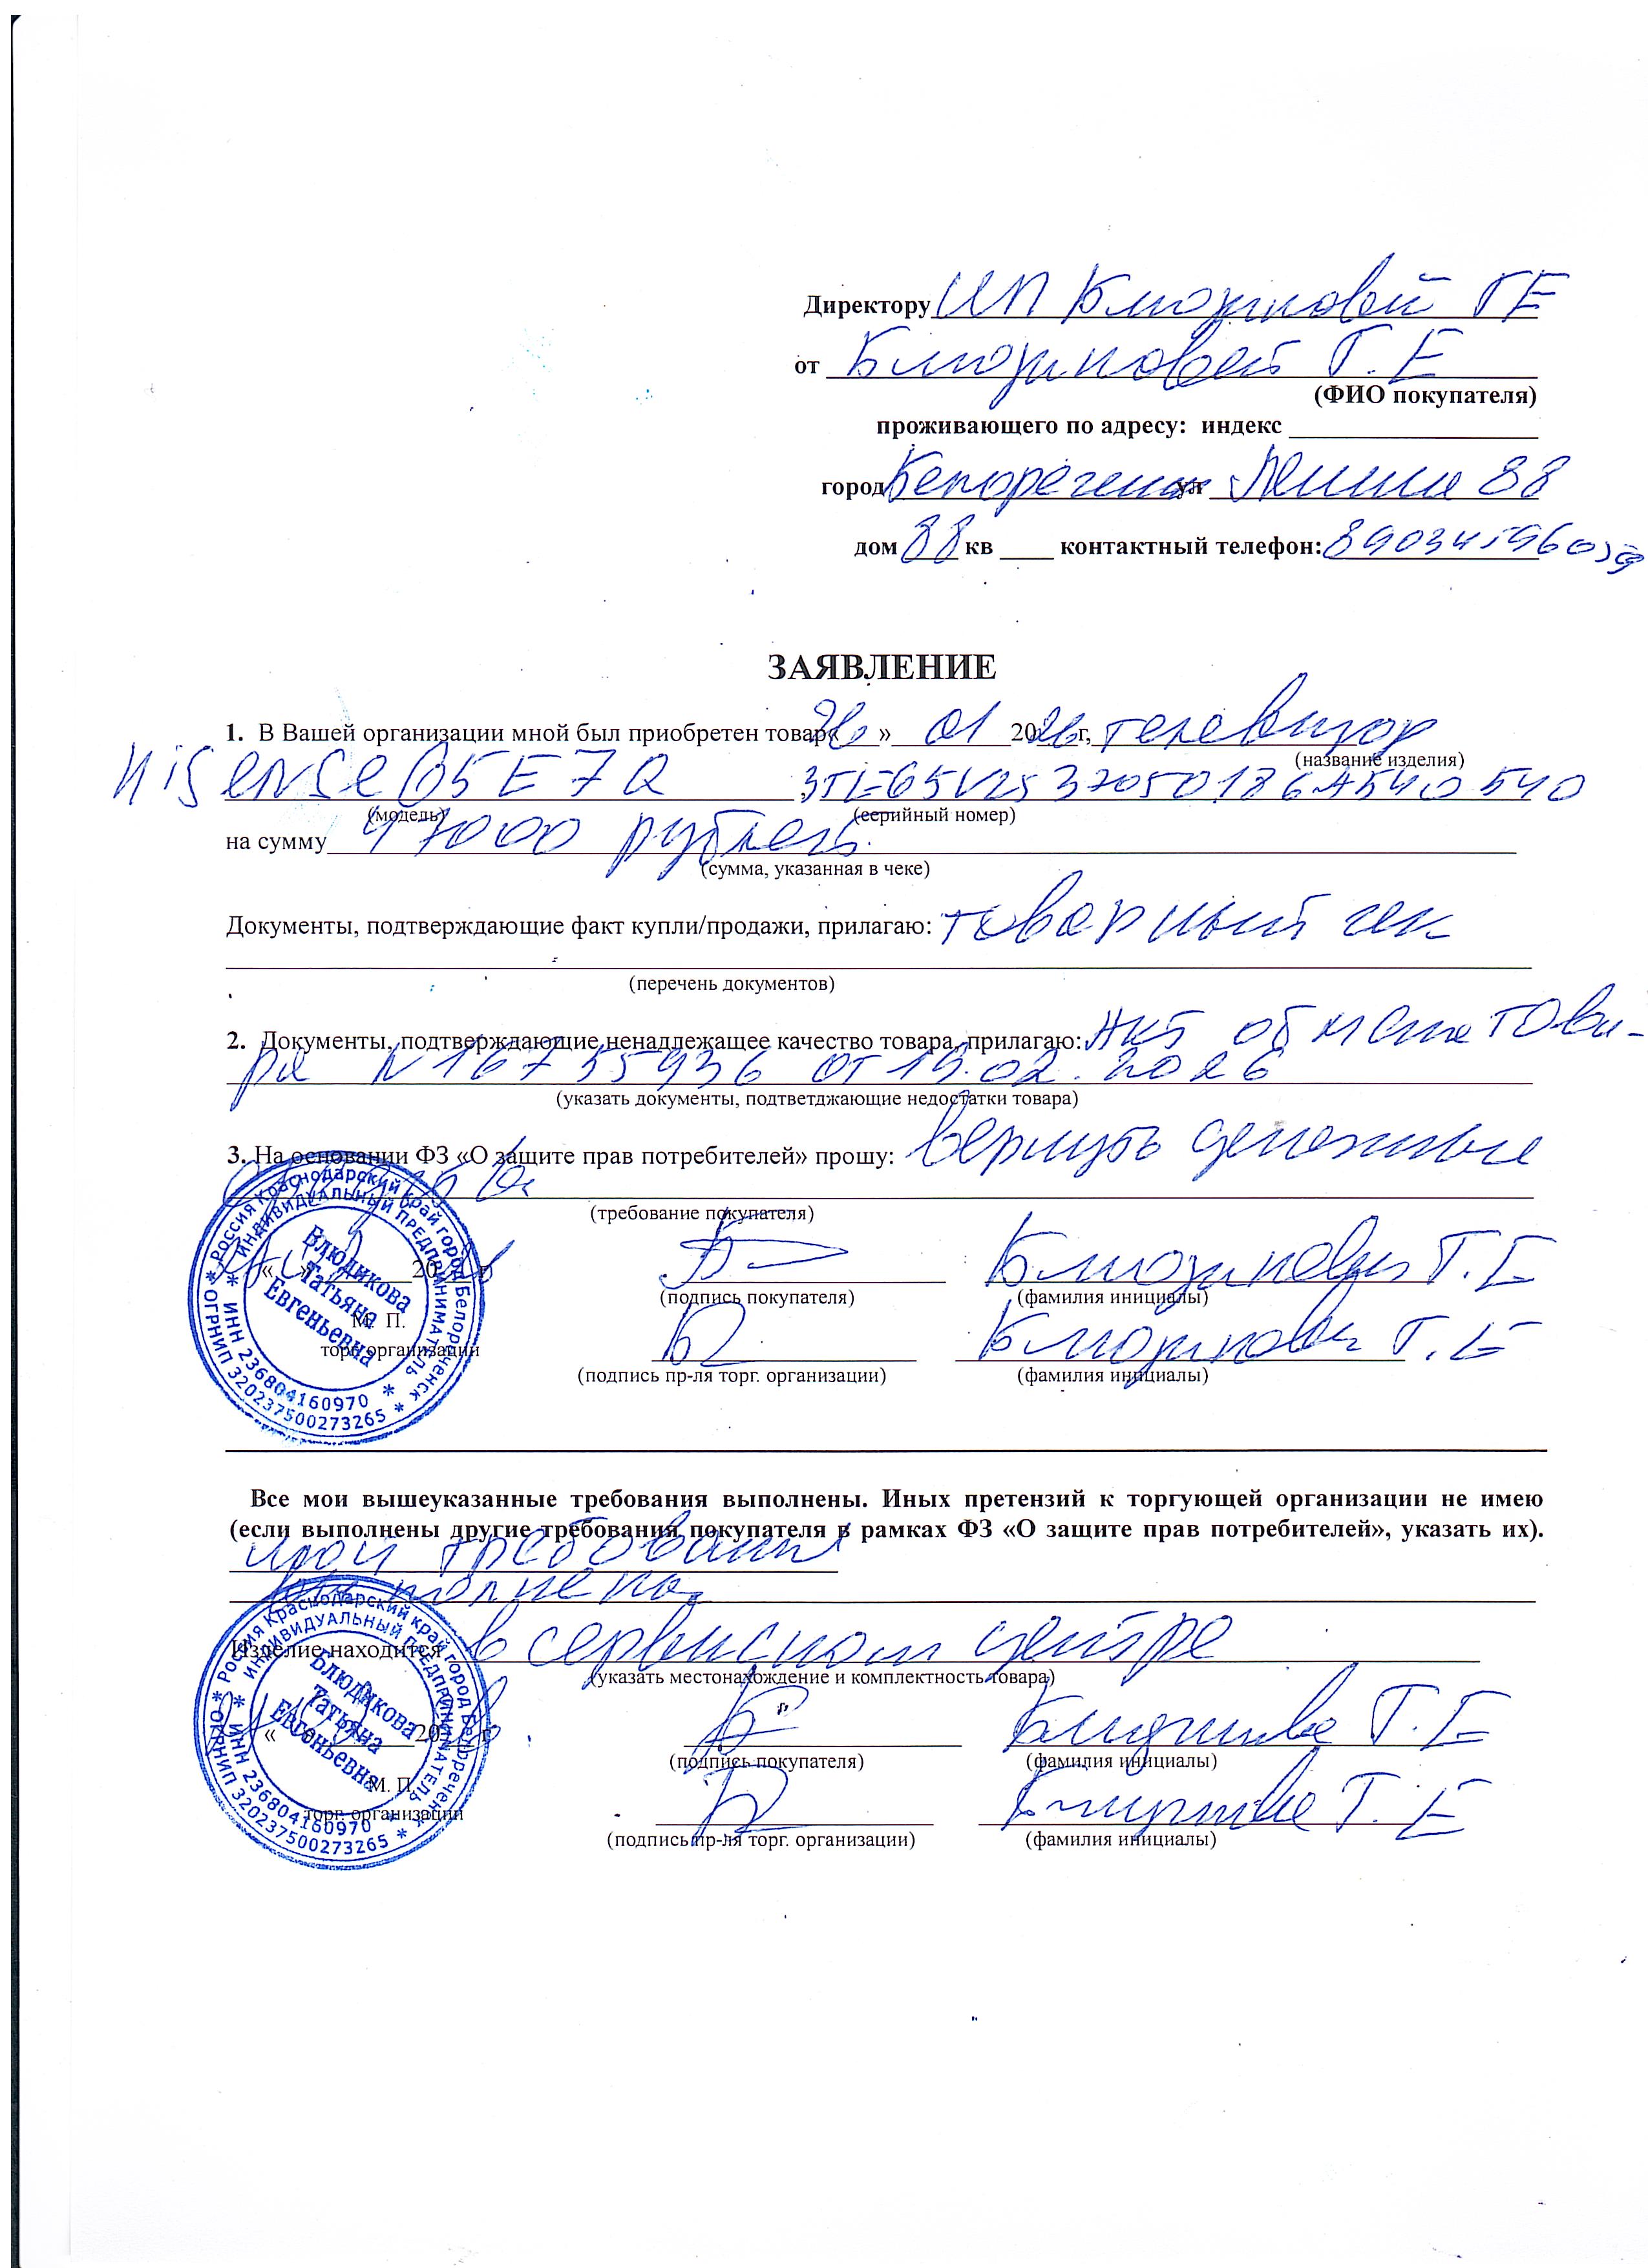 Директору ИП Блюдиковой Т Е
от Блюдиковой Т. Е
(ФИО покупателя)
проживающего по адресу: индекс
город Белореченск ул Ленина 88
дом 88 кв контактный телефон:
ЗАЯВЛЕНИЕ
1. В Вашей организации мной был приобретен товар « 26 » 01 20 26 г, телевизор
(название изделия)
Hisense 65E7Q , 3TE65V2537050186A540540
(модель) (серийный номер)
на сумму 47000 рублей.
(сумма, указанная в чеке)
Документы, подтверждающие факт купли/продажи, прилагаю: товарный чек
(перечень документов)
2. Документы, подтверждающие ненадлежащее качество товара, прилагаю: Акт обмена това-
ра N 16755936 от 19.02.2026
(указать документы, подтветджающие недостатки товара)
3. На основании ФЗ «О защите прав потребителей» прошу: вернуть денежные
средства
(требование покупателя)
« » 20 г Блюдикова Т. Е
(подпись покупателя) (фамилия инициалы)
М. П.
торг. организации Блюдикова Т. Е
(подпись пр-ля торг. организации) (фамилия инициалы)
* Россия Краснодарский край город Белореченск * ОГРНИП 320237500273265
* ИНДИВИДУАЛЬНЫЙ ПРЕДПРИНИМАТЕЛЬ * ИНН 236804160970
Блюдикова
Татьяна
Евгеньевна
Все мои вышеуказанные требования выполнены. Иных претензий к торгующей организации не имею
(если выполнены другие требования покупателя в рамках ФЗ «О защите прав потребителей», указать их).
мои требования
выполнены
Изделие находится в сервисном центре
(указать местонахождение и комплектность товара)
« » 20 г Блюдикова Т. Е
(подпись покупателя) (фамилия инициалы)
М. П.
торг. организации Блюдикова Т. Е
(подпись пр-ля торг. организации) (фамилия инициалы)
* Россия Краснодарский край город Белореченск * ОГРНИП 320237500273265
* ИНДИВИДУАЛЬНЫЙ ПРЕДПРИНИМАТЕЛЬ * ИНН 236804160970
Блюдикова
Татьяна
Евгеньевна